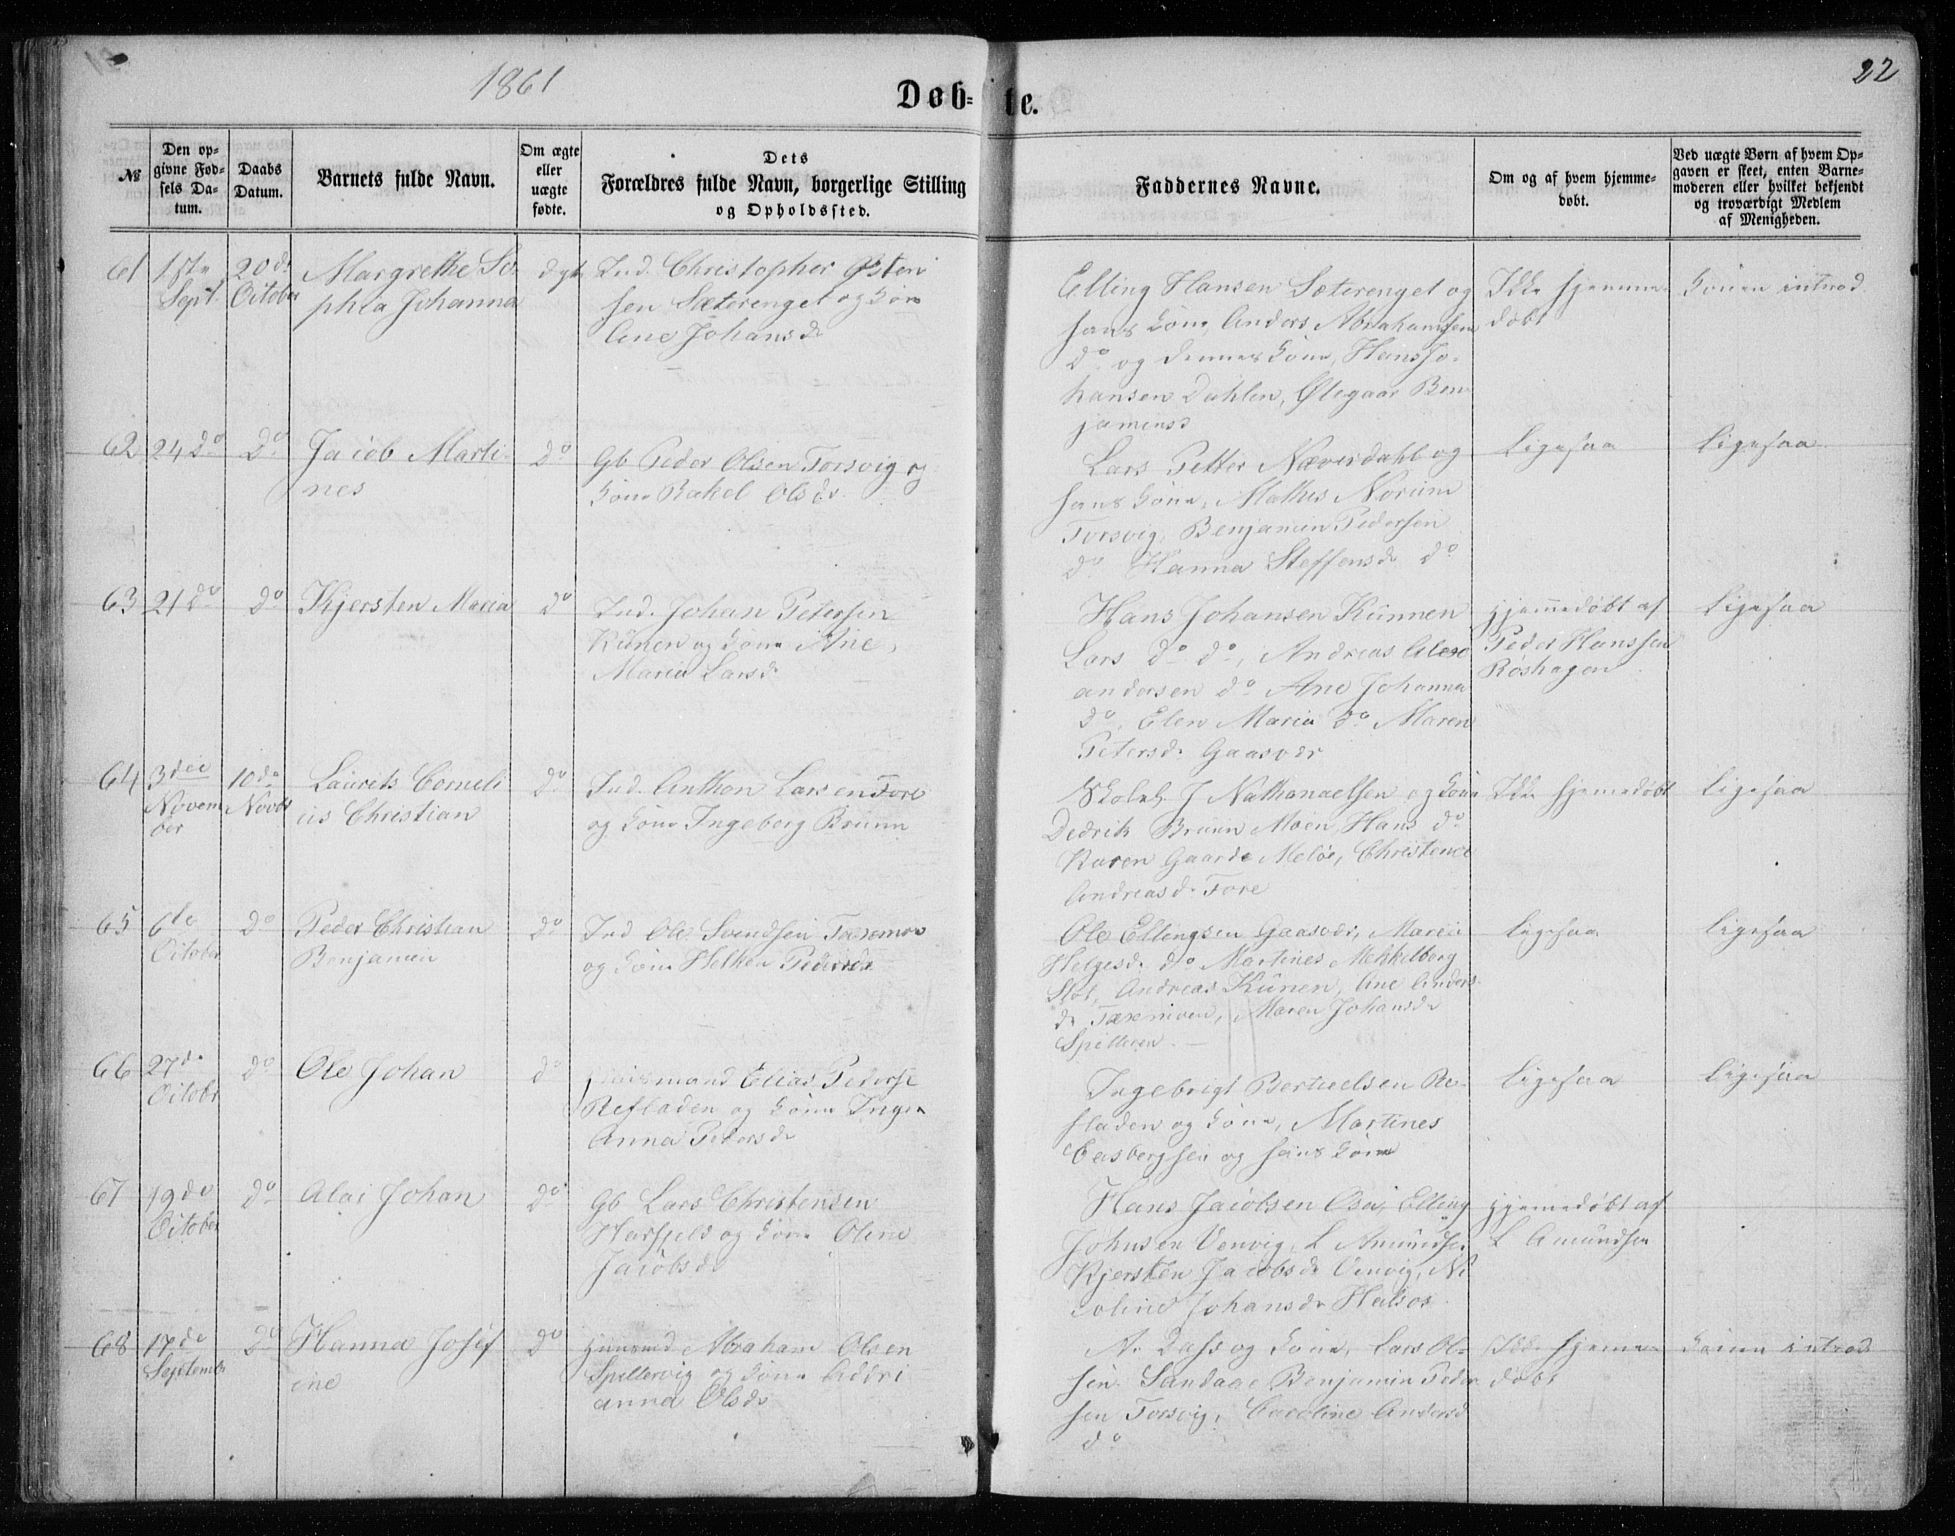 1861
22
Døb-te.
№
Den op-
givne Fød-
sels Da-
tum.
Daabs
Datum.
Barnets fulde Navn.
Om ægte
eller
uægte
fødte.
Dets
Forældres fulde Navn, borgerlige Stilling
og Opholdssted.
Faddernes Navne.
Om og af hvem hjemme-
døbt.
Ved uægte Børn af hvem Op-
gaven er skeet, enten Barne-
moderen eller hvilket bekjendt
og troværdigt Medlem
af Menigheden.
61
1ste
Sept.
20de
October
Margrethe So
phia Johanna
ægt
Ind. Christopher Østen
sen Sæterenget og Kone
Ane Johansd
Elling Hansen Sæterenget og
hans Kone, Anders Abrahamsen
do og dennes Kone, Hans Jo-
hansen Dahlen, Ølegaar Ben
jaminsd
Ikke hjemme
døbt
Konen introd.
62
24 do
do
Jacob Marti-
nes
do
Gb Peder Olsen Torsvig og
Kone Rakel Olsdr.
Lars Petter Næverdahl og
hans Kone, Mathis Norum
Torsvig, Benjamin Pedersen
do Hanna Steffensd do
Ligesaa
Ligesaa
63
21 do
do
Kjersten Maria
do
Ind. Johan Petersen
Kunen og Kone Ane
Maria Larsd
Hans Johansen Kunnen
Lars do do, Andreas Alex
andersen do Ane Johanna
do, Elen Maria do Maren
Petersd. Gaasvær
hjemedøbt af
Peder Hanssen
Røshagen
Ligesaa
64
3die
Novem
ber
10de
Novbr
Laurits Corneli
us Christian
do
Ind. Anthon Larsen Fore
og Kone Ingeborg Bruun
Skoleh. J Nathanaelsen og Kone
Dedrik Bruun Moen, Hans do
Karen Gaarde Meløe, Christence
Andreasd. Fore
Ikke hjemedøbt
Ligesaa
65
6te
October
do
Peder Christian
Benjamin
do
Ind Ole Svendsen
og Kone Pedersd
Ole Ellingsen Gaasvær, Maren
Helgesd. do Martines Mekkelborg
Støt, Andreas Kunen, Ane Anders
d. Maren Johansd
Ligesaa
Ligesaa
66
27de
Octobr
do
Ole Johan
do
Huusmand Elias Peders
Refladen og Kone Inger
Anna Petersd
Ingebrigt Bertheelsen Re-
fladen og Kone, Martines
og hans Kone
Ligesaa
Ligesaa
67
19de
October
do
Alai Johan
do
Gb Lars Christensen
Harfjeld og Kone Oline
Jacobsd
Hans Jacobsen Osa, Elling
Johnsen Venvig, L Amundsen
Kjersten Jacobsd Venvig, Ni
coline Johansd Halsos.
hjemedøbt af
L Amundsen
68
17de
September
do
Hanna Josef
ine
do
Huusmd Abraham Olsen
Spellervig og Kone Addri
anna Olsdr
A. Dass og Kone, Lars Ol-
sen Sandaae Benjamin Peder
sen Torsvig, Caroline Andersd
do
Ikke hjemme
døbt
Konen introd.